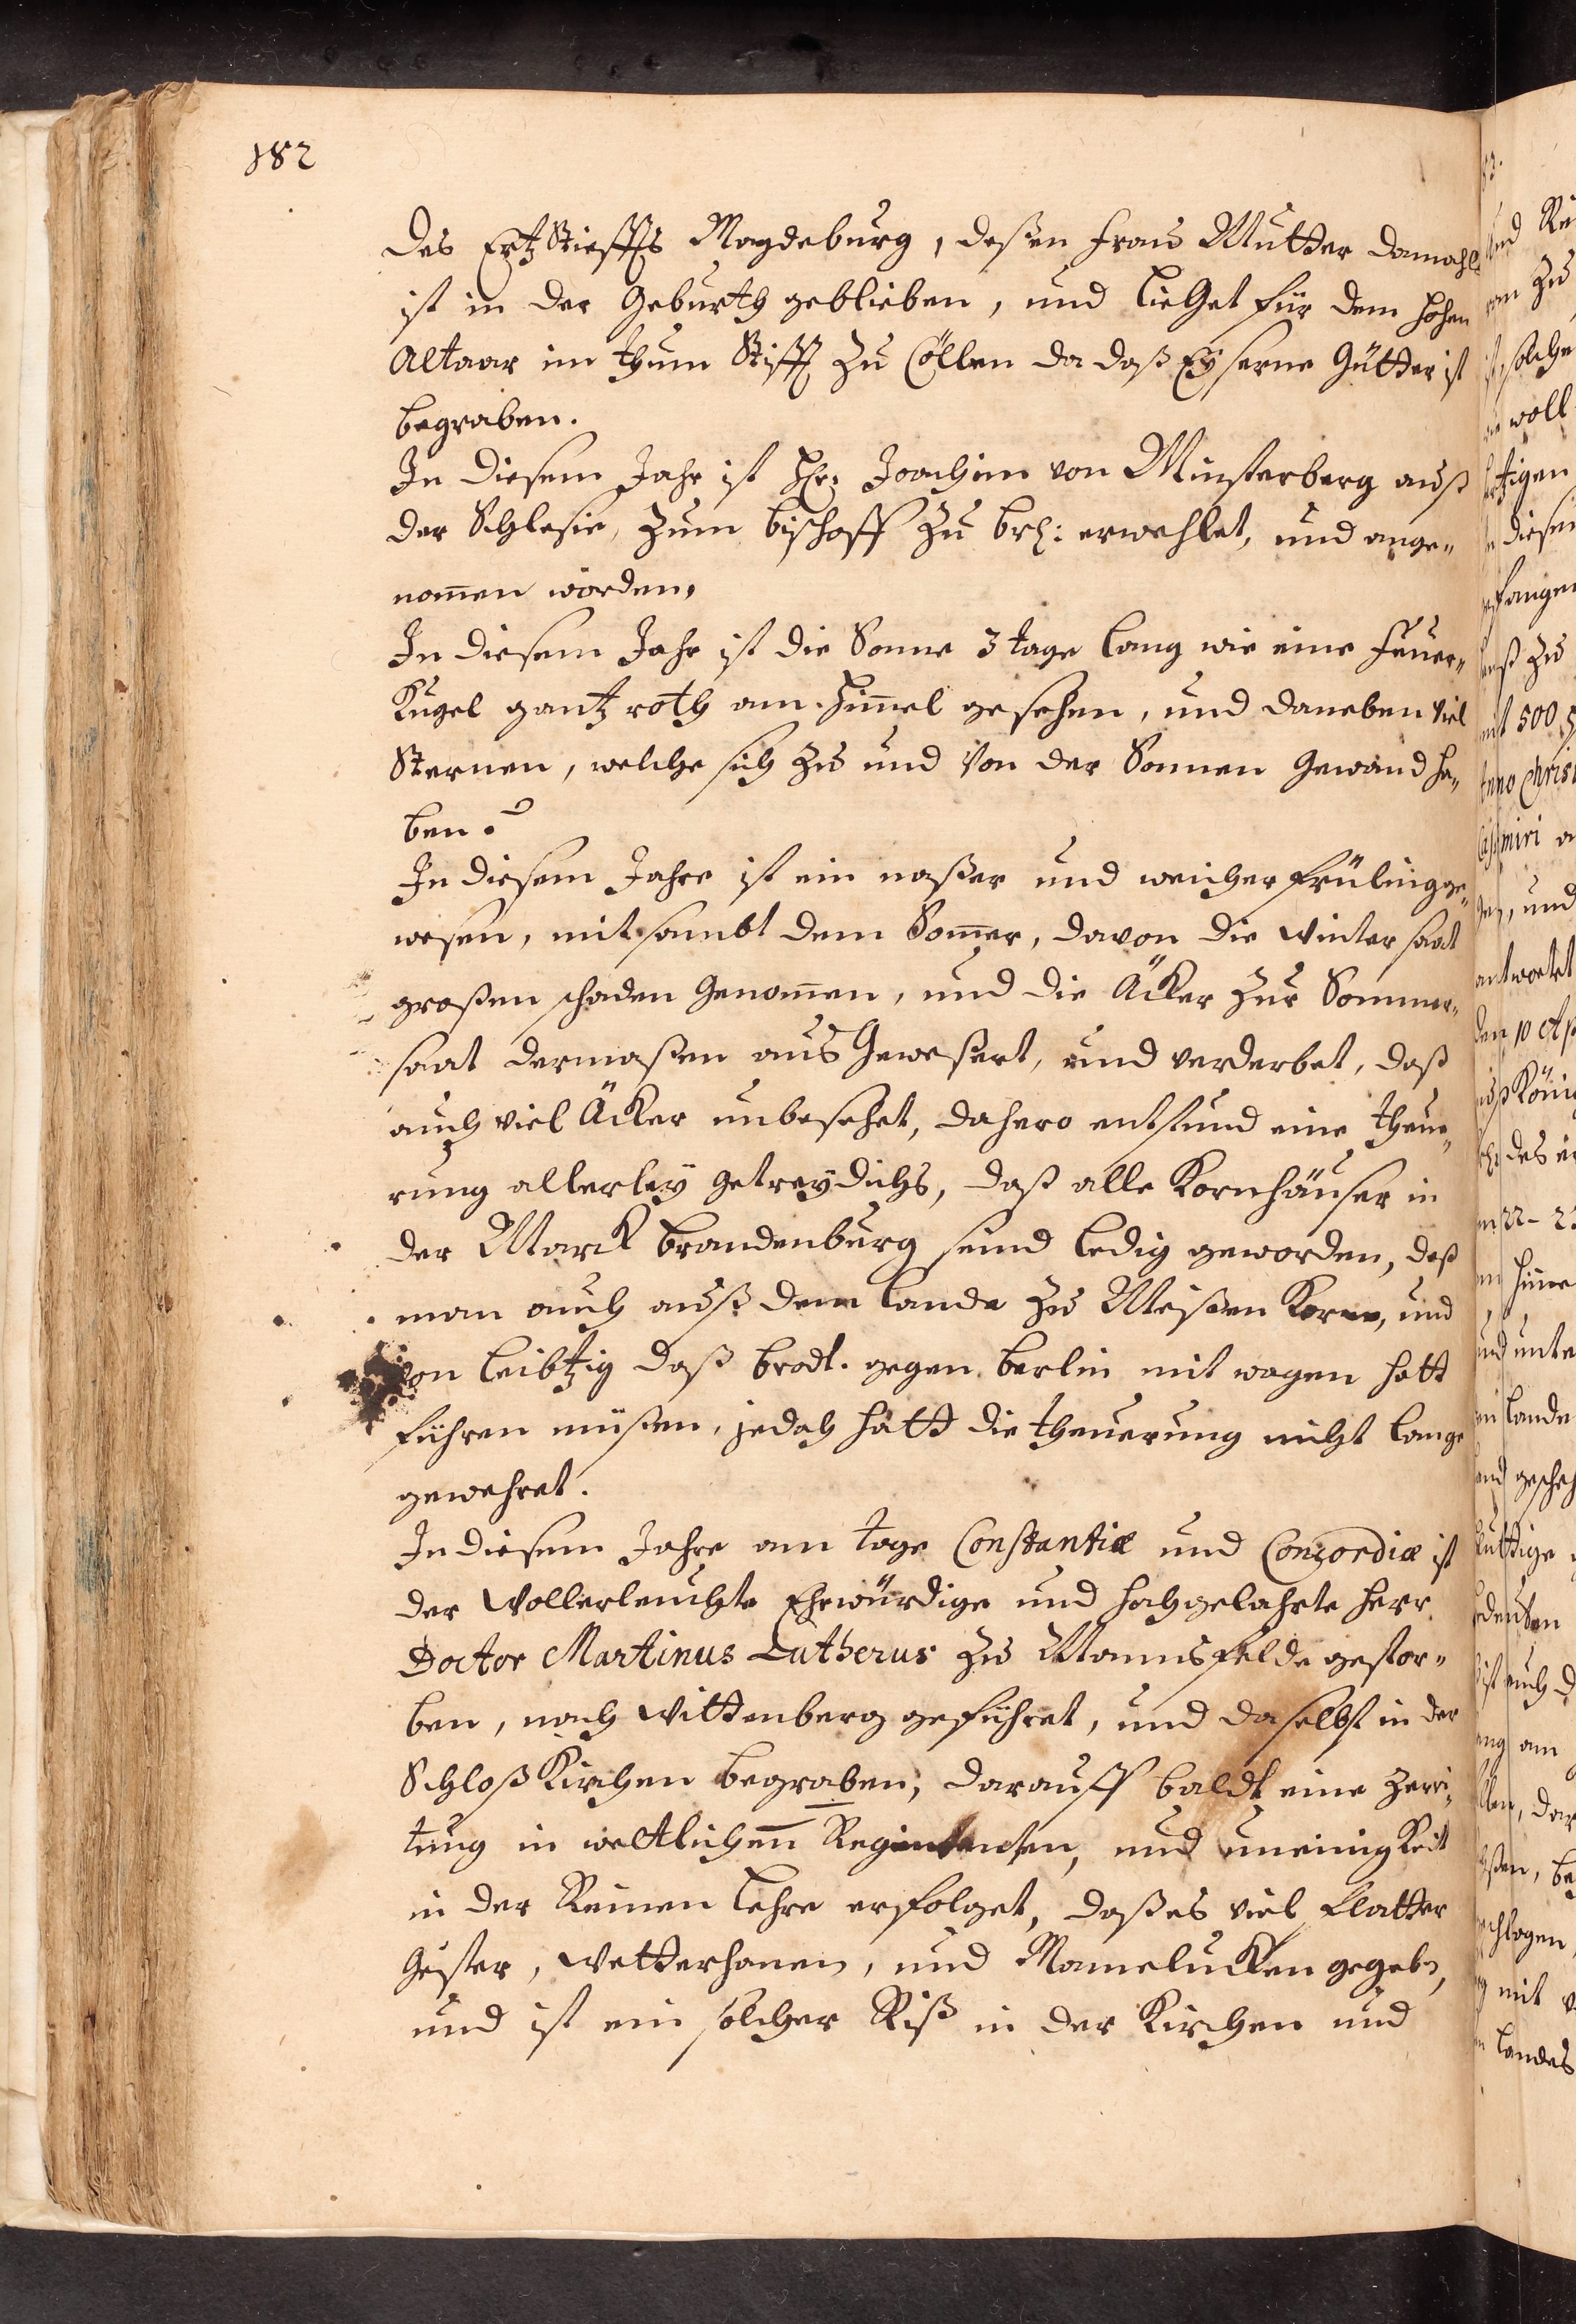 182
des Ertz Stieffts Magdeburg, deßen Fraw Mutter damahls
ist in der Geburth geblieben, und lieGet für dem hohen
Altaar im Thum Stifft zu Cöllen da daß Eyserne Gütter ist
begraben.
In diesem Jahr ist Hr: Joachim von Münsterberg auß
der Schlesie, zum bischoff zu brb: erwehlet, und ange„
nom̄en worden,
In diesem Jahr ist die Sonne 3 tage lang wie eine feuer„
Kugel gantz roth am Him̄el gesehen, und daneben viel
Sternen, welche sich zu und von der Sonnen Gewand ha„
ben.
In diesem Jahre ist ein naßer und weicher frülingge„
wesen, mit sambt dem Som̄er, davon die Winter saat
großen schaden Genom̄en, und die Äcker zur Sommer„
saat dermaßen aus Geweßert, und verderbet, daß
auch viel Äcker unbesehet, dahero entstund eine theue„
rung allerley Getreydichs, daß alle Kornhäuser in
der Marck Brandenburg seind ledig geworden, daß
man auch auß dem lande zu Meißen Korn, und
von leibtzig daß brodt. gegen berlin mit wagen hatt
führen müßen, jedoch hatt die theuerung nicht lange
gewehret.
In diesem Jahre am tage Constantiæ und Concordiæ ist
der Wollerleuchte Ehrwürdige und hochgelahrte herr
Doctor Martinus Lutherus zu Mannsfelde gestor„
ben, nach Wittenberg geführet, und daselbst in der
Schloß Kirchen begraben, darauff baldt eine Zerri„
tung in weltlichenn Regimenten, und uneinigKeit
in der Reinen lehre erfolget, daß es viel Flatter
Geister, Wetterhanen, und Mamelucken gegebn,
und ist ein solcher Riß in der Kirchen und